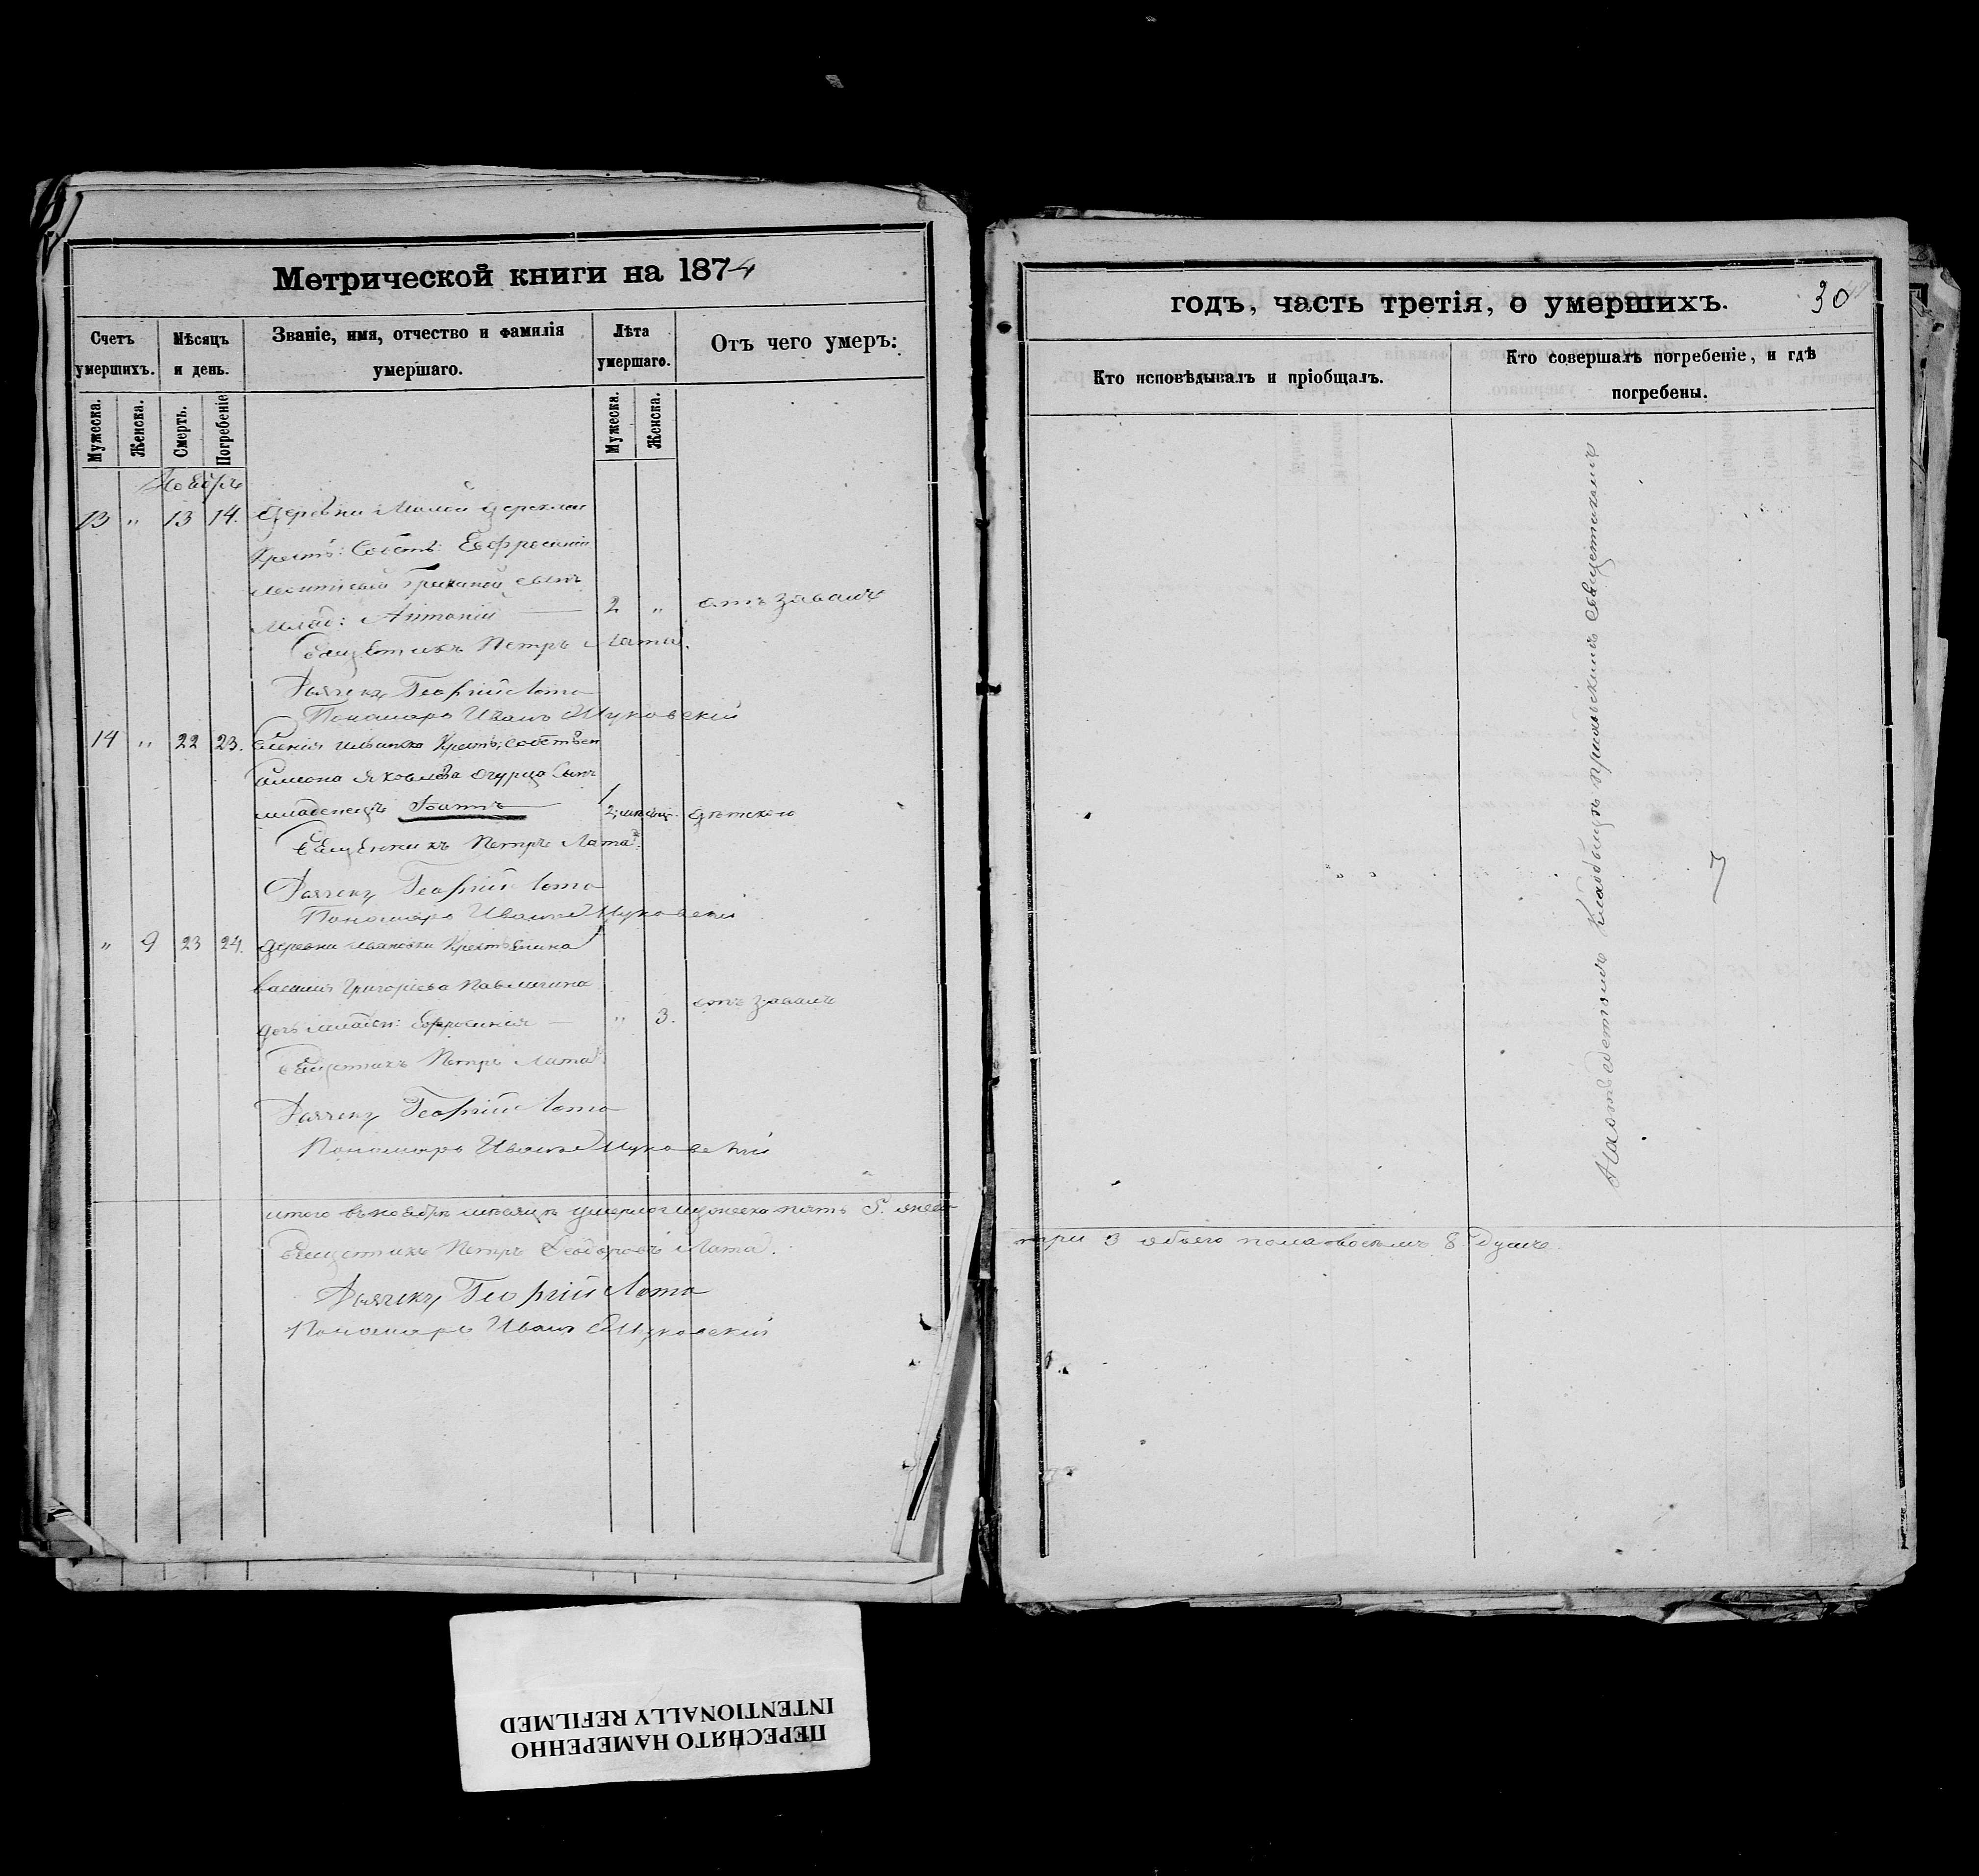 Метрической книги на 1874
Счетъ умершихъ.
Мѣсяцъ и день.
Званіе, имя, отчество и фамилія умершаго.
Лѣта умершаго.
Отъ чего умеръ:
Мужеска.
Женска.
Смерть.
Погребеніе
Мужеска.
Женска.
Ноябрь
13 „ 13 14. Деревни Малой
Крест: Собств:
сынъ
Млад: Антоній — 2 „ отъ завалъ
Священникъ Петръ Лата.
Дьячекъ Георгій Лата
Пономарь Иванъ Жуковскій
14 „ 22 23. Селенія Крест: собствен
Симеона Яковлева Огурца Сынъ
младенецъ Іоаннъ — дѣтскою
Священникъ Петръ Лата.
Дьячекъ Георгій Лата
Пономарь Иванъ Жуковскій
„ 9 23 24. Деревни Ивановки Крестьянина
Василія Григоріева
дочь младен: Ефросинія — „ 3. отъ завалъ
Священникъ Петръ Лата.
Дьячекъ Георгій Лата
Пономарь Иванъ Жуковскій
итого въ ноябрѣ мѣсяцѣ умерло мужеска пять 5. женс
Священникъ Петръ Ѳеодоровъ Лата.
Дьячекъ Георгій Лата
Пономарь Иванъ Жуковскій
годъ, часть третія, о умершихъ. 30
Кто исповѣдывалъ и пріобщалъ.
Кто совершалъ погребеніе, и гдѣ погребены.
На отведенномъ Кладбищѣ приходскимъ священникомъ
три 3 обоего пола восемь 8 душъ.
ПЕРЕСНЯТО НАМЕРЕННО
INTENTIONALLY REFILMED